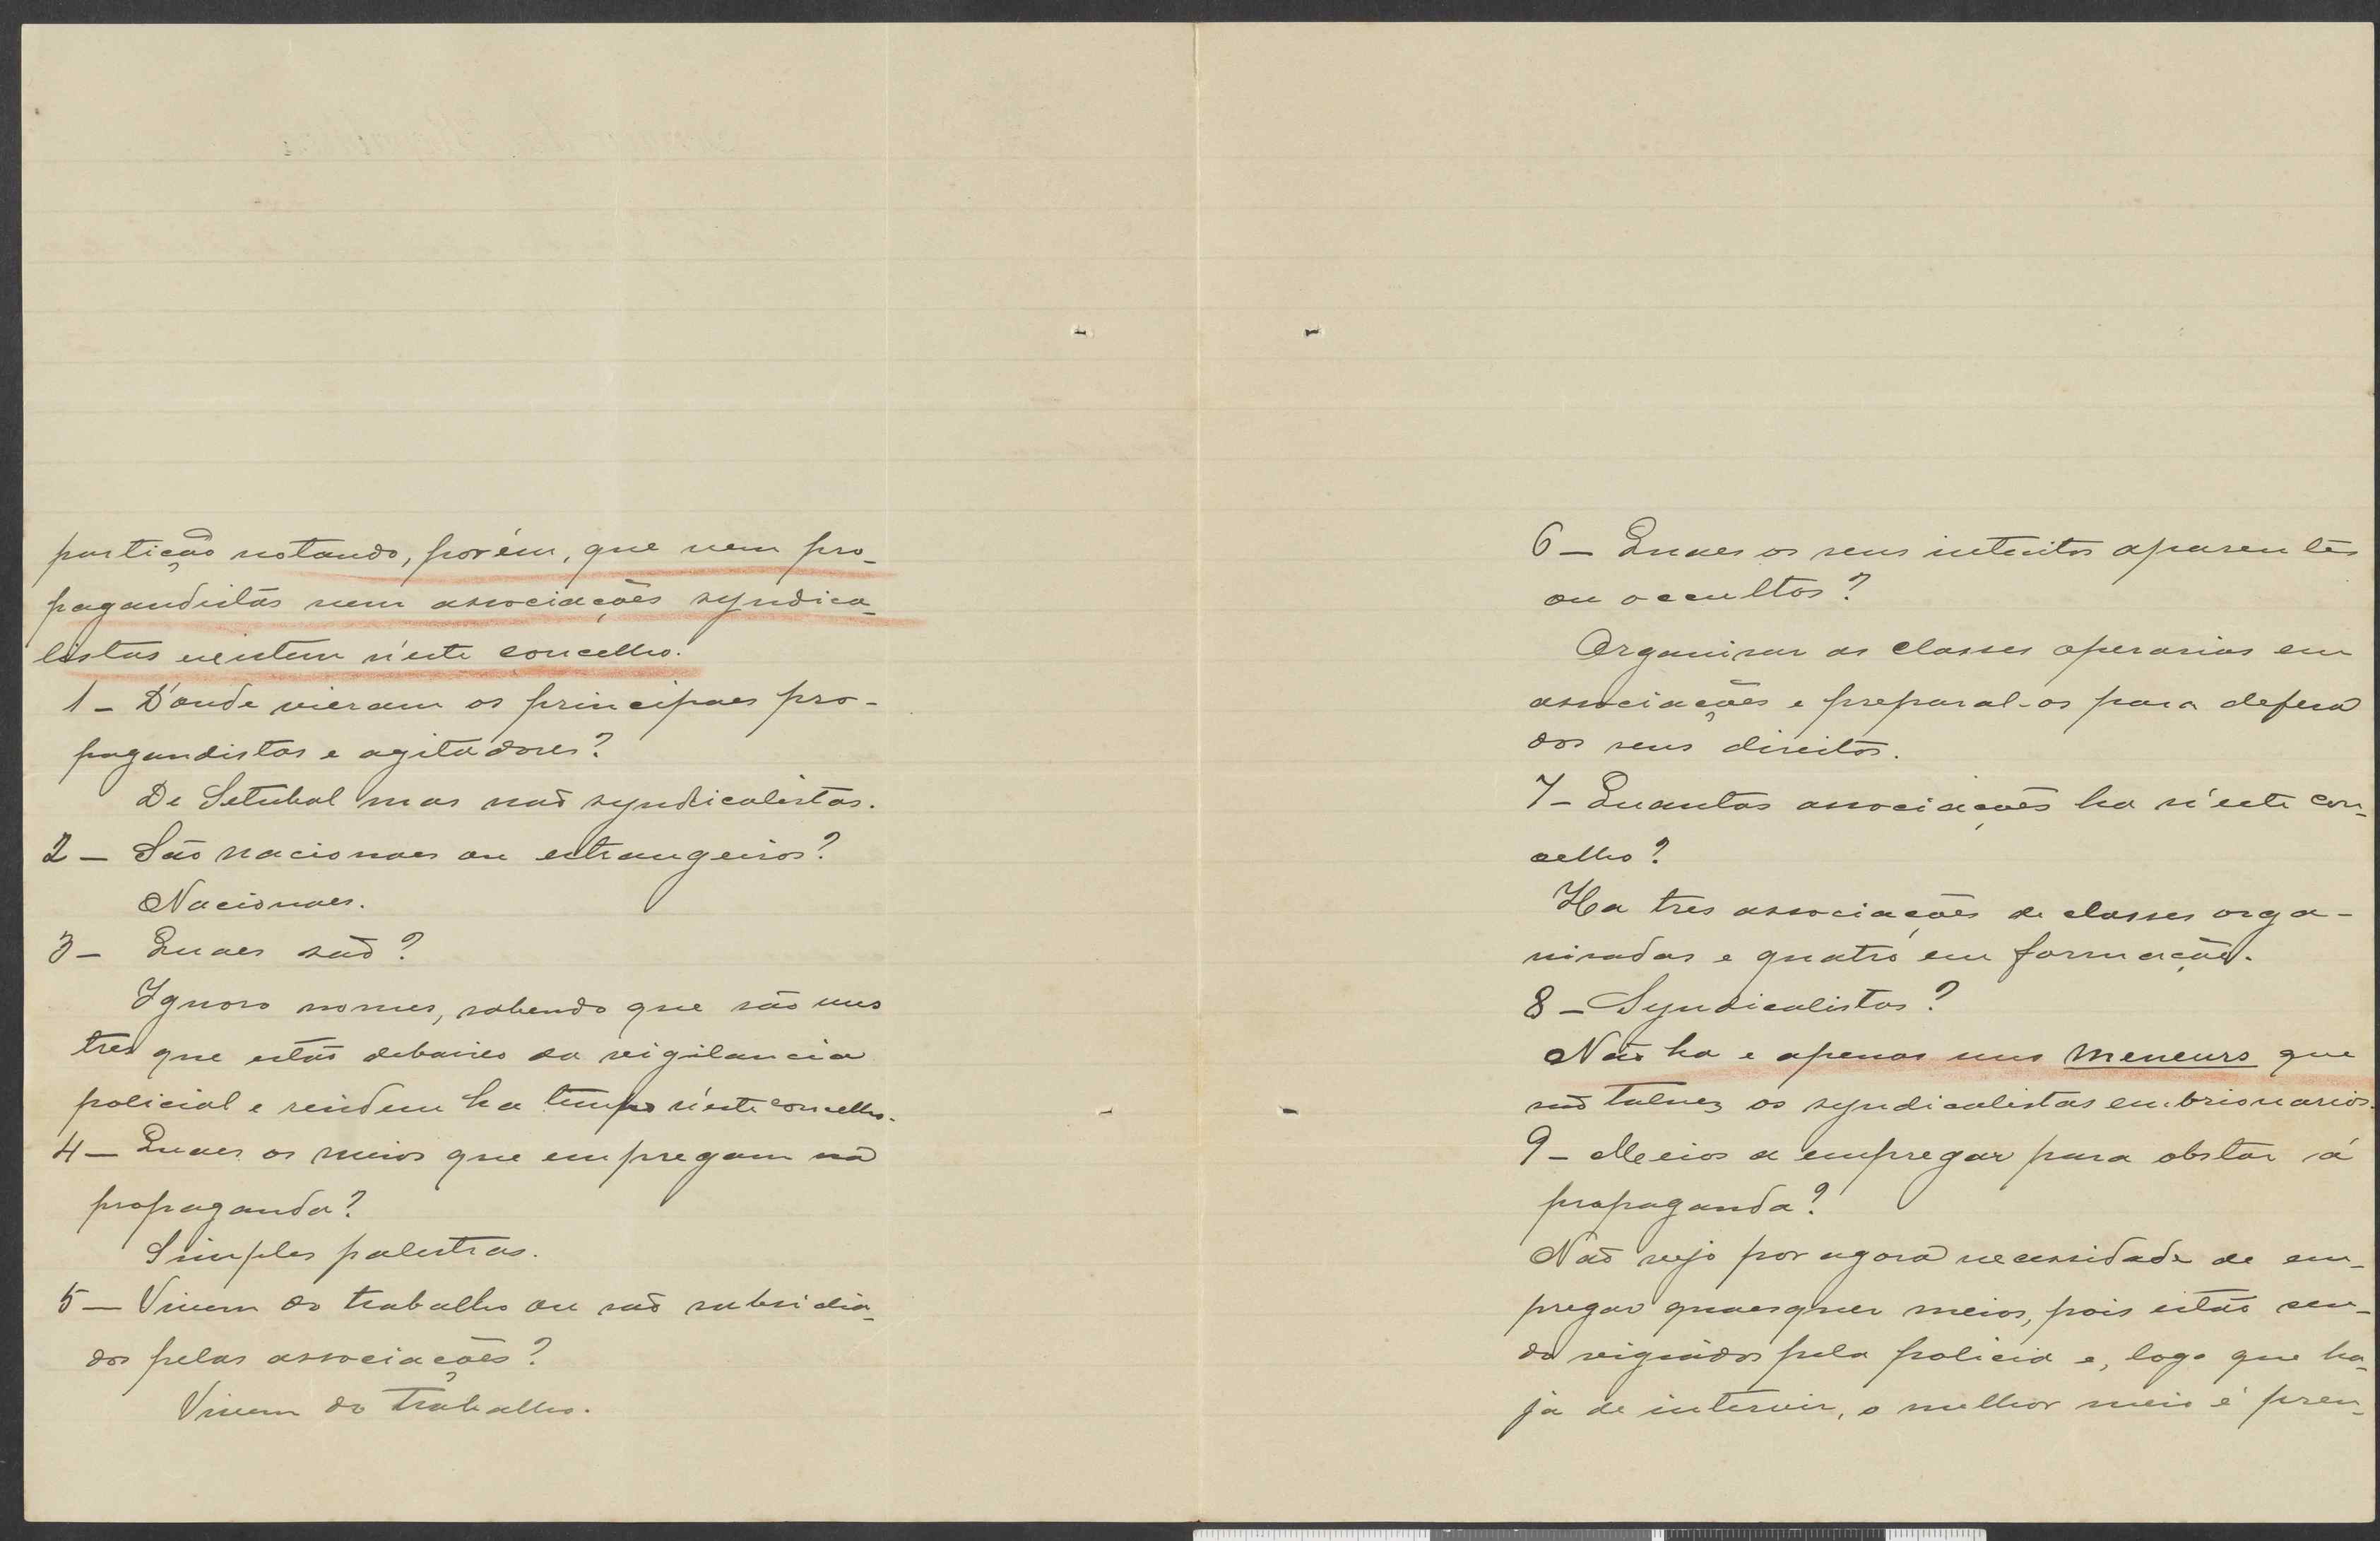 partição notando, porém, que nem pro-
pagandistas nem associações syndica-
listas existem n'este concelho.
1 - D'onde vieram os principaes pro-
pagandistas e agitadores?
De Setubal mas não syndicalistas.
2 - São nacionaes ou estrangeiros?
Nacionaes.
3 - Quaes são?
Ignoro nomes, sabendo que são uns
tres que estão debaixo da vigilancia
policial e residem ha tempo n'este concelho.
4 - Quaes os meios que empregam na
propaganda?
Simples palestras.
5 - Vivem do trabalho ou são subsidia-
dos pelas associações?
Vivem do trabalho.
6 - Quaes os seus intuitos aparentes
ou occultos?
Organisar as classes operarias em
associações e preparal-os para defesa
dos seus direitos.
7 - Quantas associações ha n'este con-
celho?
Ha tres associações de classes orga-
nisadas e quatro em formação.
8 - Syndicalistas?
Não ha e apenas uns meneurs que
são talvez os syndicalistas embrionarios.
9 - Meios a empregar para obstar á
propaganda?
Não vejo por agora necessidade de em-
pregar quaesquer meios, pois estão sen-
do vigiados pela policia e, logo que ha-
ja de intervir, o melhor meio é pren-